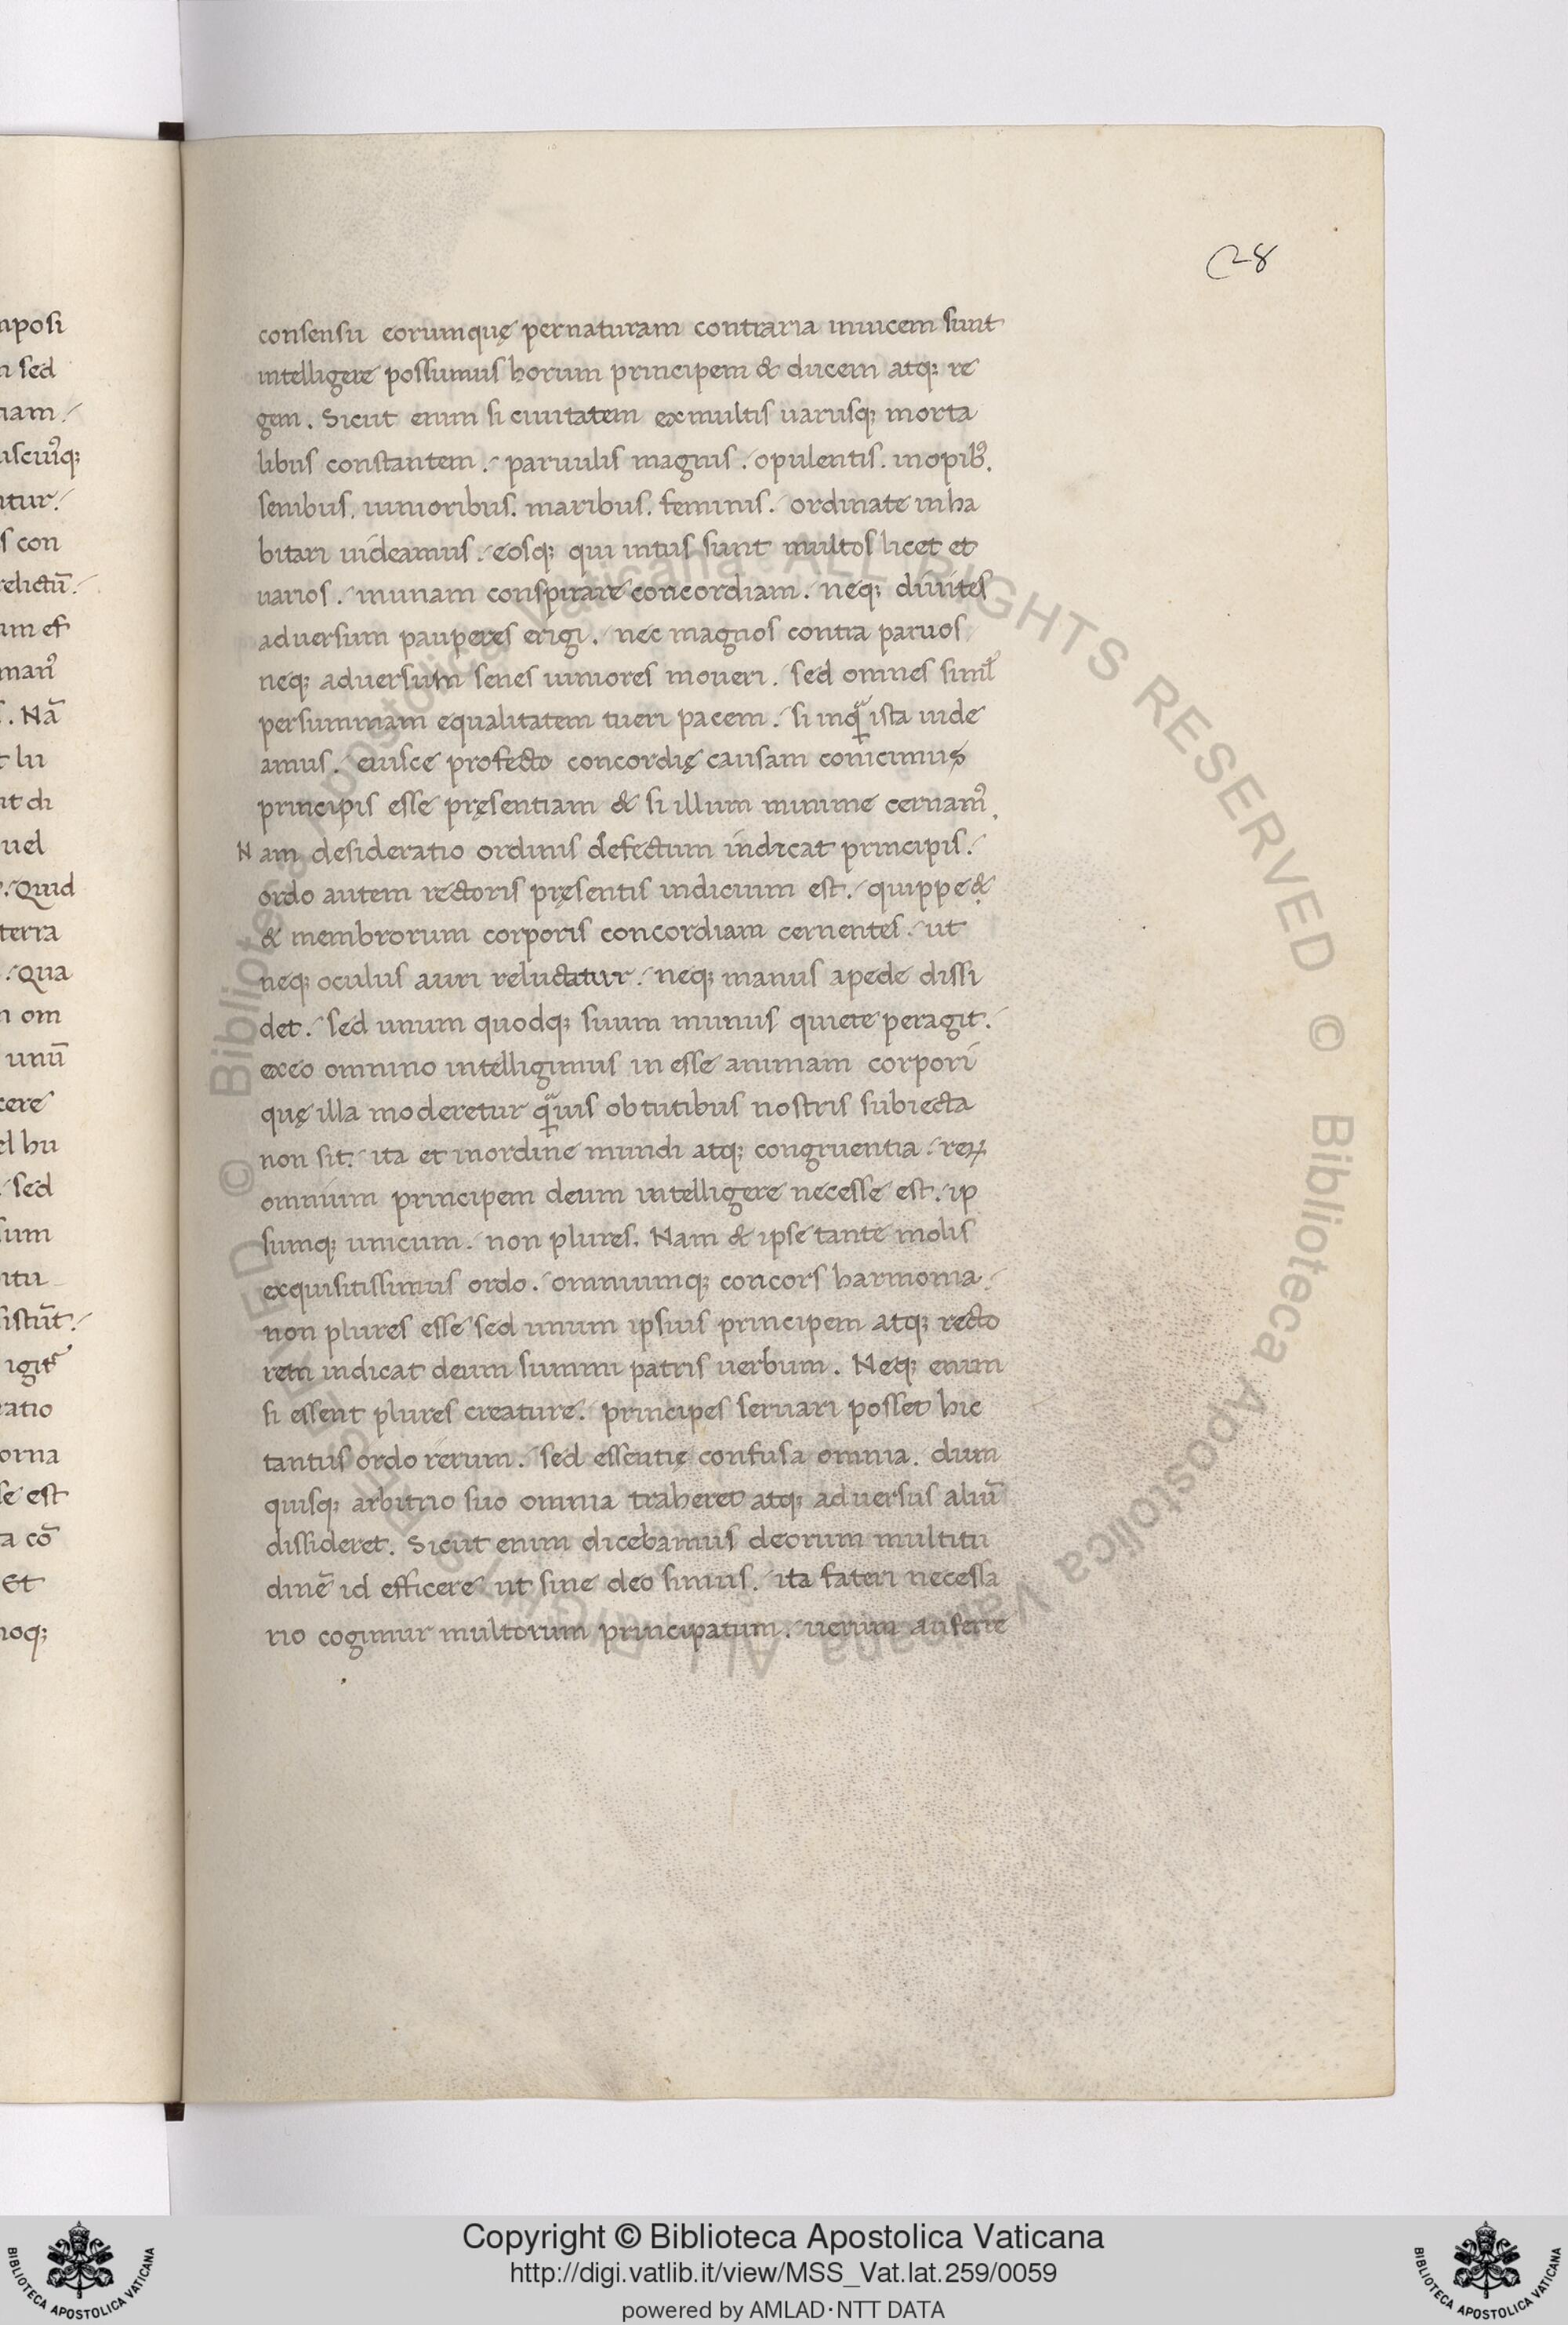 28
consensu eorumquę pernaturam contraria inuicem sunt
intelligere possumus horum principem & ducem atq; re
gem. Sicut enim si ciuitatem exmultis uariisq; morta
libus constantem. paruulis magnis. opulentis. inopibꝰ.
senibus. iunioribus. maribus. feminis. ordinate inha
bitari uideamus. eosq; qui intus sunt multos licet et
uarios. inunam conspirare concordiam. neq; diuites
adversum pauperes erigi. nec magnos contra paruos
neq; adversum senes iuniores moueri. sed omnes simł
persummam equalitatem tueri pacem. si inqͣ ista uide
amus. eiusce profecto concordię causam conicimus
principis esse pręsentiam & si illum minime cernamꝰ.
Nam desideratio ordinis defectum indicat principis.
ordo autem rectoris pręsentis indicium est. quippe &
& membrorum corporis concordiam cernentes. ut
neq; oculus auri reluctatur. neq; manus apede dissi
det. sed unum quodq; suum munus quiete peragit.
exeo omnino intelligimus in esse animam corpori
quę illa moderetur qͣuis obtutibus nostris subiecta
non sit. ita et inordine mundi atq; congruentia. reꝝ
omnium principem deum intelligere necesse est. ip
sumq; unicum. non plures. Nam & ipse tante molis
exquisitissimus ordo. omniumq; concors harmonia.
non plures esse sed unum ipsius principem atq; recto
rem indicat deum summi patris uerbum. Neq; enim
si essent plures creature. principes seruari posset hic
tantus ordo rerum. sed essentię confusa omnia. dum
quisq; arbitrio suo omnia traheret atq; adversus aliū
dissideret. Sicut enim dicebamus deorum multitu
dinē id efficere ut sine deo simus. ita fateri necessa
rio cogimur multorum principatum. uerum auferre
mposi
n sed
tur.
s con
relictū.
. Nā
t lu
it di
uel
. Quid
terra
. Qua
n om
unū
cere
el hu
. sed
sum
itu
ratio
orna
se est
a cō
Et
© Biblioteca Apostolica Vaticana ALL RIGHTS RESERVED © Biblioteca Apostolica Vaticana ALL RIGHTS RESERVED
Copyright © Biblioteca Apostolica Vaticana
http://digi.vatlib.it/view/MSS_Vat.lat.259/0059
powered by AMLAD·NTT DATA
BIBLIOTECA APOSTOLICA VATICANA
BIBLIOTECA APOSTOLICA VATICANA